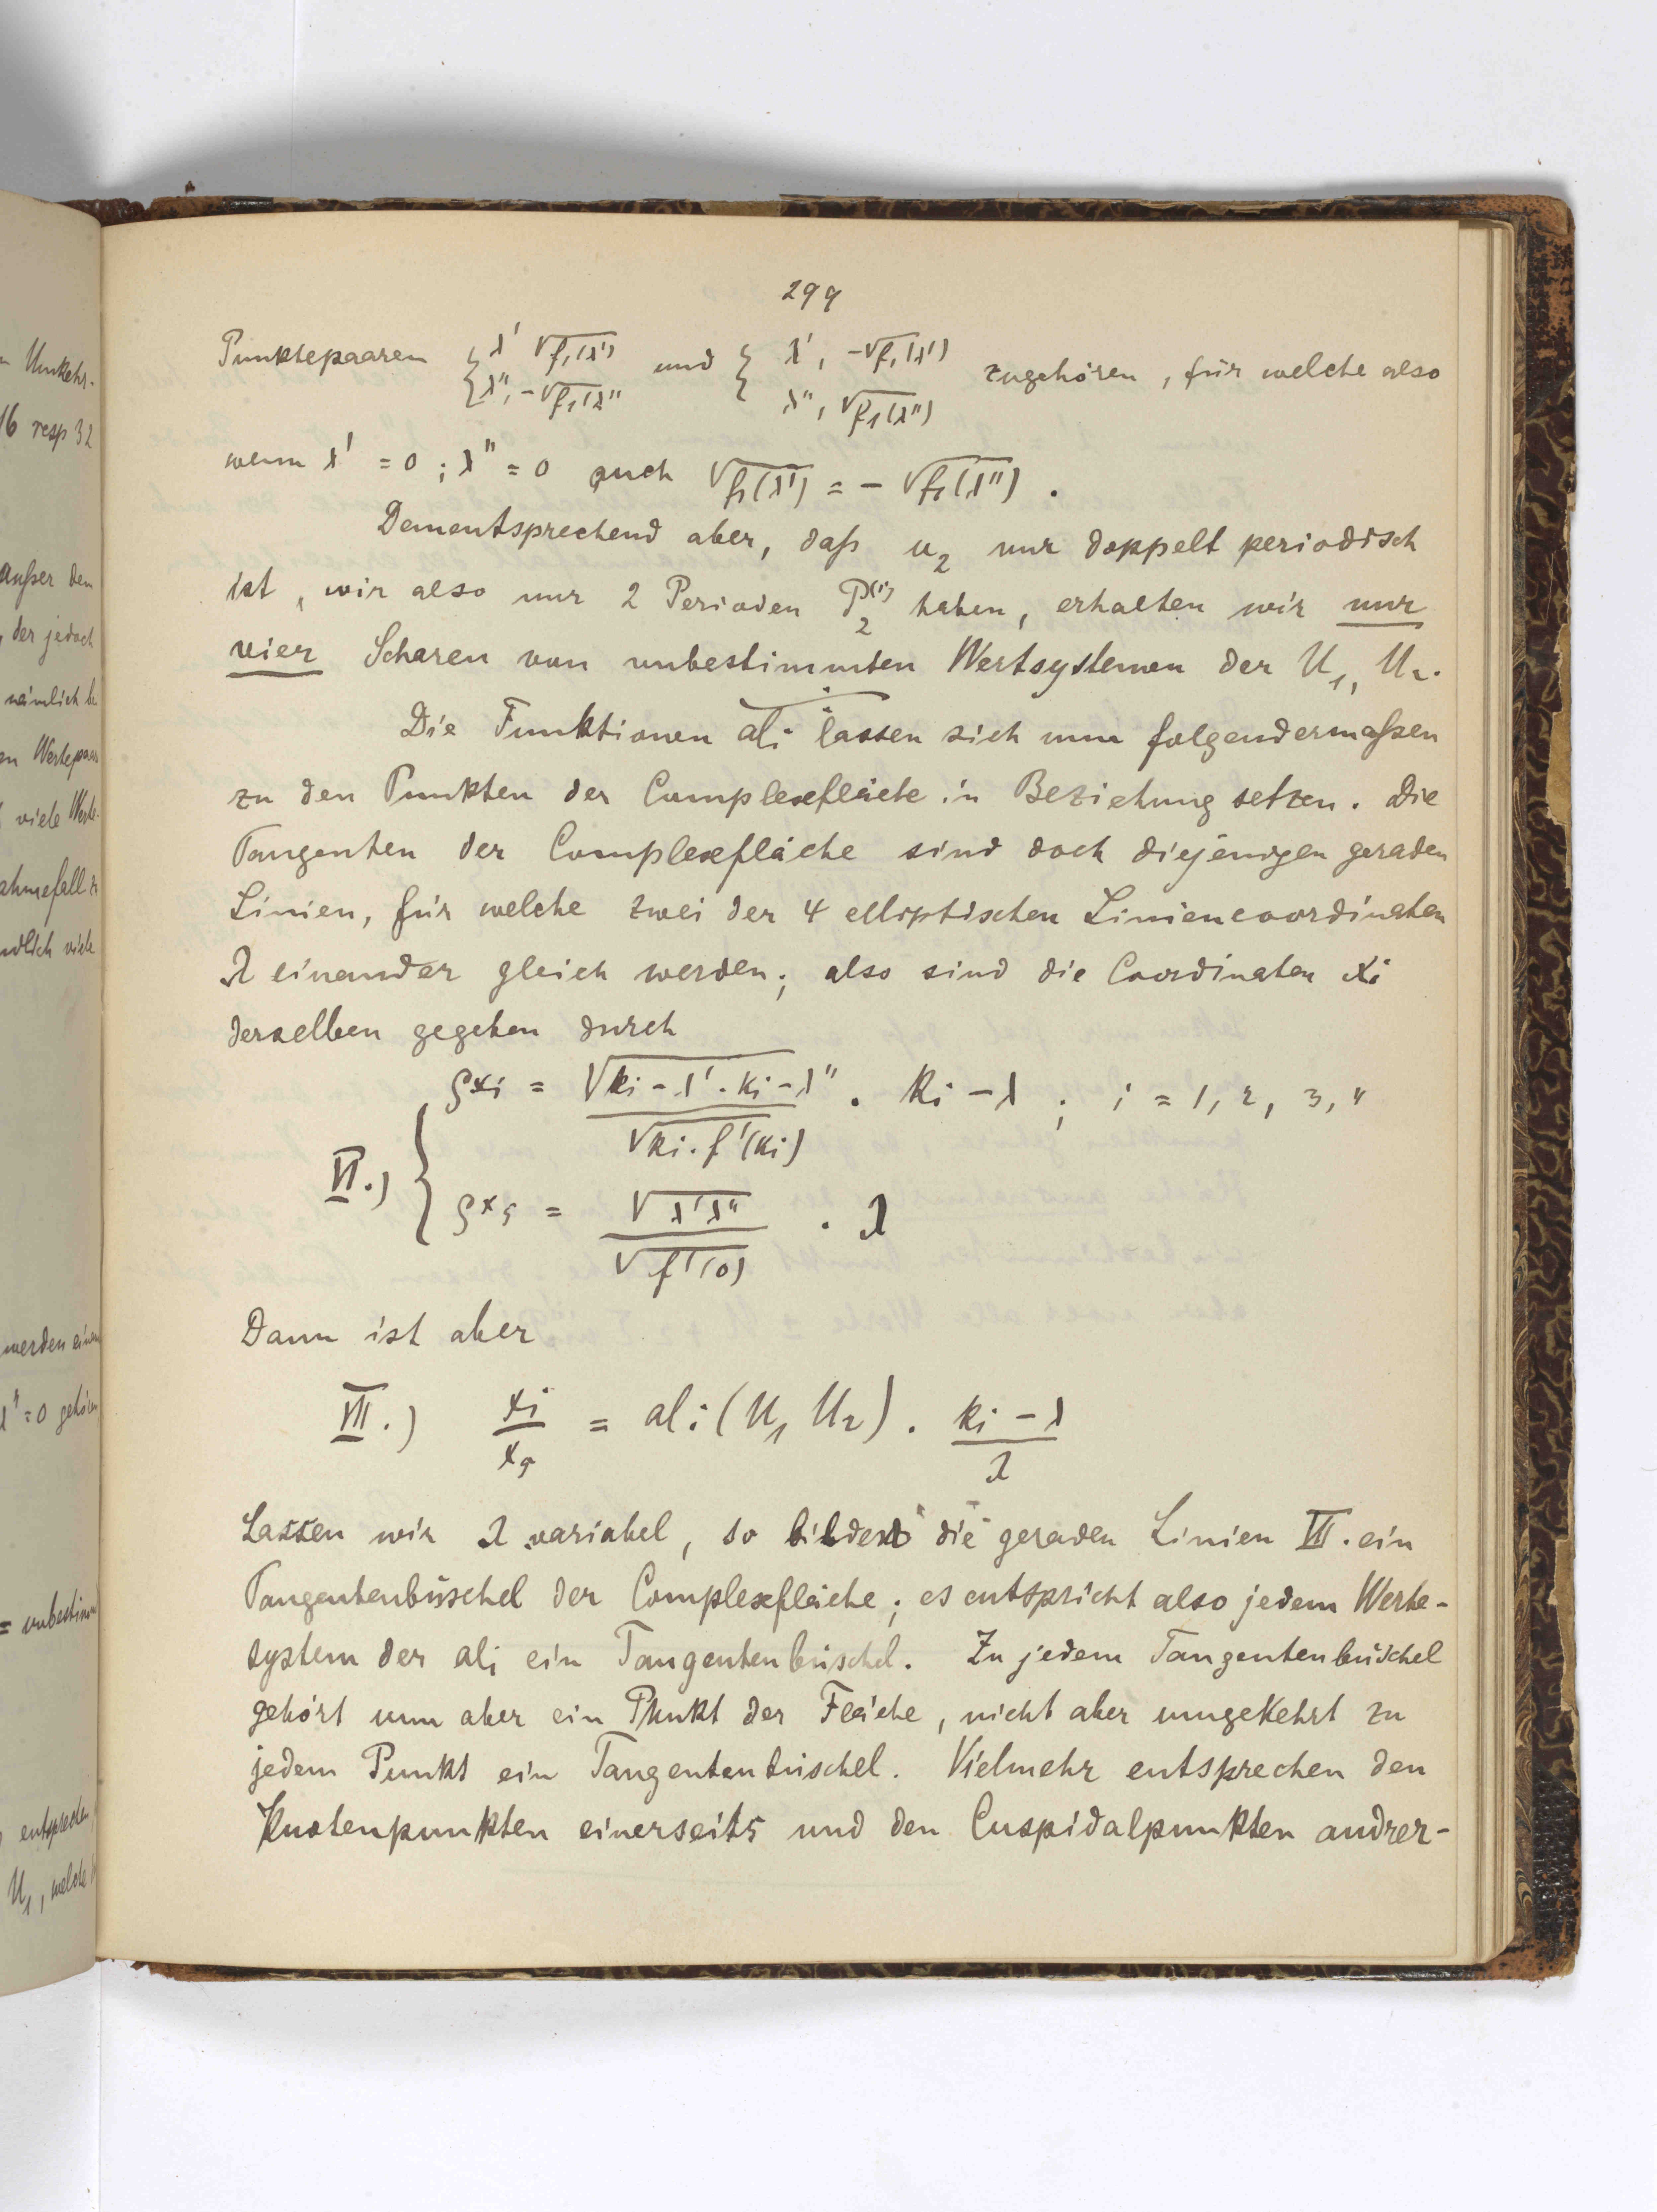 n Umkehr-
16 resp 32
außer den
, der jedoch
nämlich
en Wertepaar
viele Werte-
ahmefall
ndlich viele
werden einen
λ" = 0 gehören
= unbestimm
entsprechen
U₁, welche
299
Punktepaaren { λ' √f₁(λ') λ", -√f₁(λ") und { λ', -√f₁(λ') λ", √f₁(λ") zugehören, für welche also
wenn λ' = 0 ; λ" = 0 auch √f₁(λ') = - √f₁(λ") .
Dementsprechend aber, daß u₂ nur doppelt periodisch
ist, wir also nur 2 Perioden P₂⁽ⁱ⁾ haben, erhalten wir nur
vier Scharen von unbestimmten Wertsystemen der U₁, U₂.
Die Funktionen ali lassen sich nun folgendermaßen
zu den Punkten der Complexfläche in Beziehung setzen. Die
Tangenten der Complexfläche sind doch diejenigen geraden
Linien, für welche zwei der 4 elliptischen Liniencoordinaten
λ einander gleich werden; also sind die Coordinaten xi
derselben gegeben durch
VI.) { ρxi = √ki-λ'·ki-λ" / √ki·f'(ki) · ki-λ ; i = 1, 2, 3, 4
ρx5 = √λ'λ" / √f'(0) · λ
Dann ist aber
VII.) xi/x5 = ali (U₁ U₂) · ki-λ / λ
Lassen wir λ variabel, so bilden die geraden Linien VII. ein
Tangentenbüschel der Complexfläche; es entspricht also jedem Werte-
system der ali ein Tangentenbüschel. Zu jedem Tangentenbüschel
gehört nun aber ein Punkt der Fläche, nicht aber umgekehrt zu
jedem Punkt ein Tangentenbüschel. Vielmehr entsprechen den
Knotenpunkten einerseits und den Cuspidalpunkten andrer-